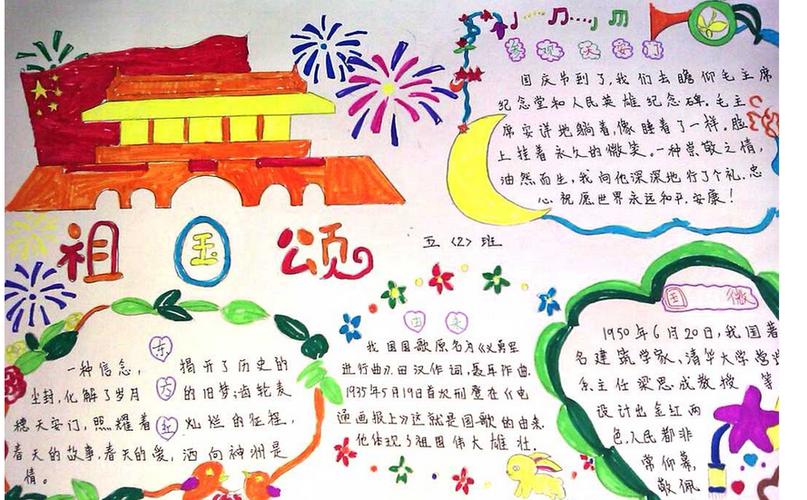 参观天安门
国庆节到了,我们去瞻仰毛主席
纪念堂和人民英雄纪念碑。毛主
席安详地躺着,像睡着了一样。脸
上挂着永久的微笑。一种崇敬之情,
油然而生,我向他深深地行了个礼。忠
心祝愿世界永远和平,安康!
祖国颂
五〈2〉班
东方红
一种信念, 揭开了历史的
尘封,化解了岁月 的旧梦;齿轮麦
穗天安门,照耀着 灿烂的征程,
春天的故事,春天的爱,洒向神州是
情。
由来
我国国歌原名为《义勇军
进行曲》,田汉作词,聂耳作曲.
1935年5月19日首次刊登在《电
通画报上》这就是国歌的由来.
他体现了祖国伟大雄壮.
国徽
1950年6月20日,我国著
名建筑学家、清华大学
系主任梁思成教授 等
设计出金红两
色,人民都非
常仰慕,
敬佩